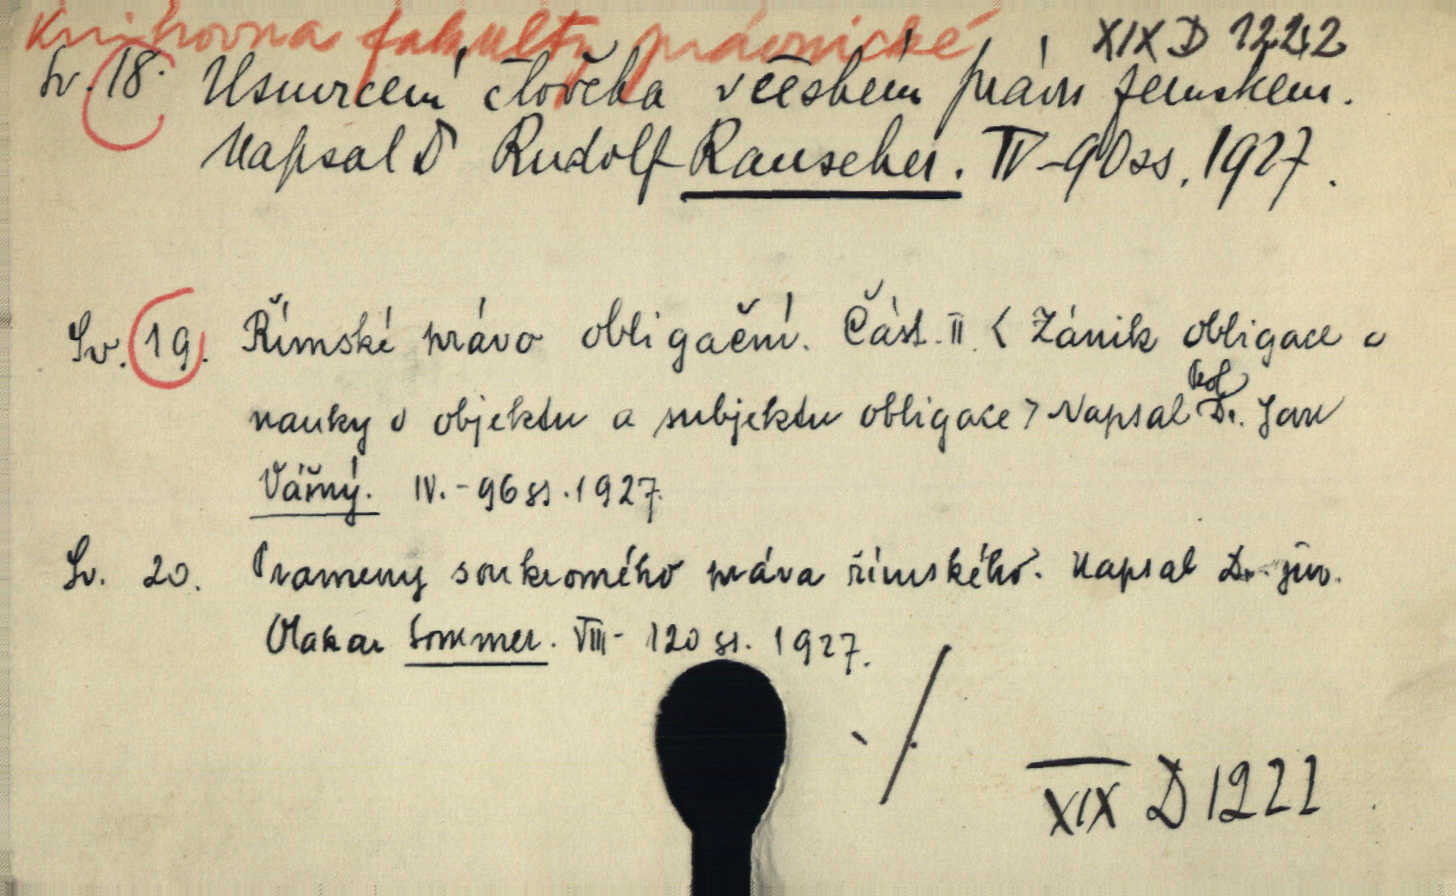 Knihovna fakulty právnické XIX D 1222
Sv. 18. Usmrcení člověka v českém právu zemském.
Napsal Dr Rudolf Rauscher. IV - 90 ss. 1927.
Sv. 19. Římské právo obligační. Část. II. < Zánik obligace a
nauky o objektu a subjektu obligace > Napsal Prof. Dr. Jan
Vážný. IV. - 96 ss. 1927.
Sv. 20. Prameny soukromého práva římského. Napsal Dr. jur.
Otakar Sommer. VIII - 120 ss. 1927.
XIX D 1222